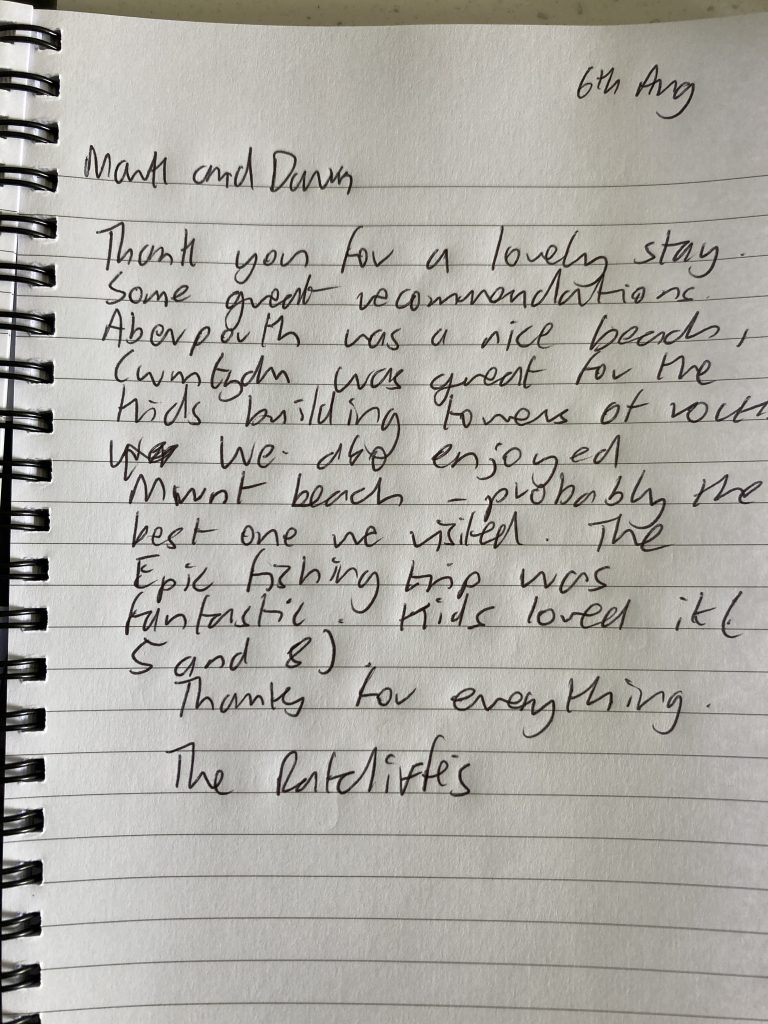 6th Aug
Mark and Dawn
Thank you for a lovely stay.
Some great recommendations.
Aberporth was a nice beach,
Cwmtydu was great for the
kids building towers of rock
We also enjoyed
Mwnt beach - probably the
best one we visited. The
Epic fishing trip was
fantastic. Kids loved it (
5 and 8).
Thanks for everything.
The Ratcliffe's